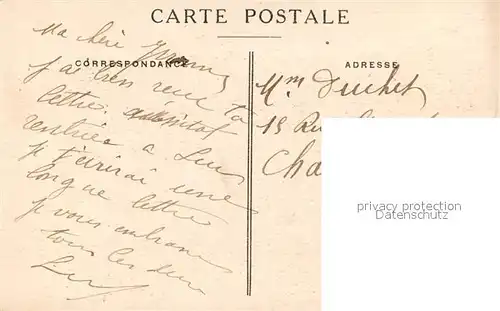 CARTE POSTALE
CORRESPONDANCE
Ma chère
j'ai bien reçu ta
lettre. aussitot
rentrées a
je t'écrirai une
longue lettre
je vous embrasse
tous les deux
ADRESSE
Mme Duchet
15 Rue
Cha
privacy protection
Datenschutz